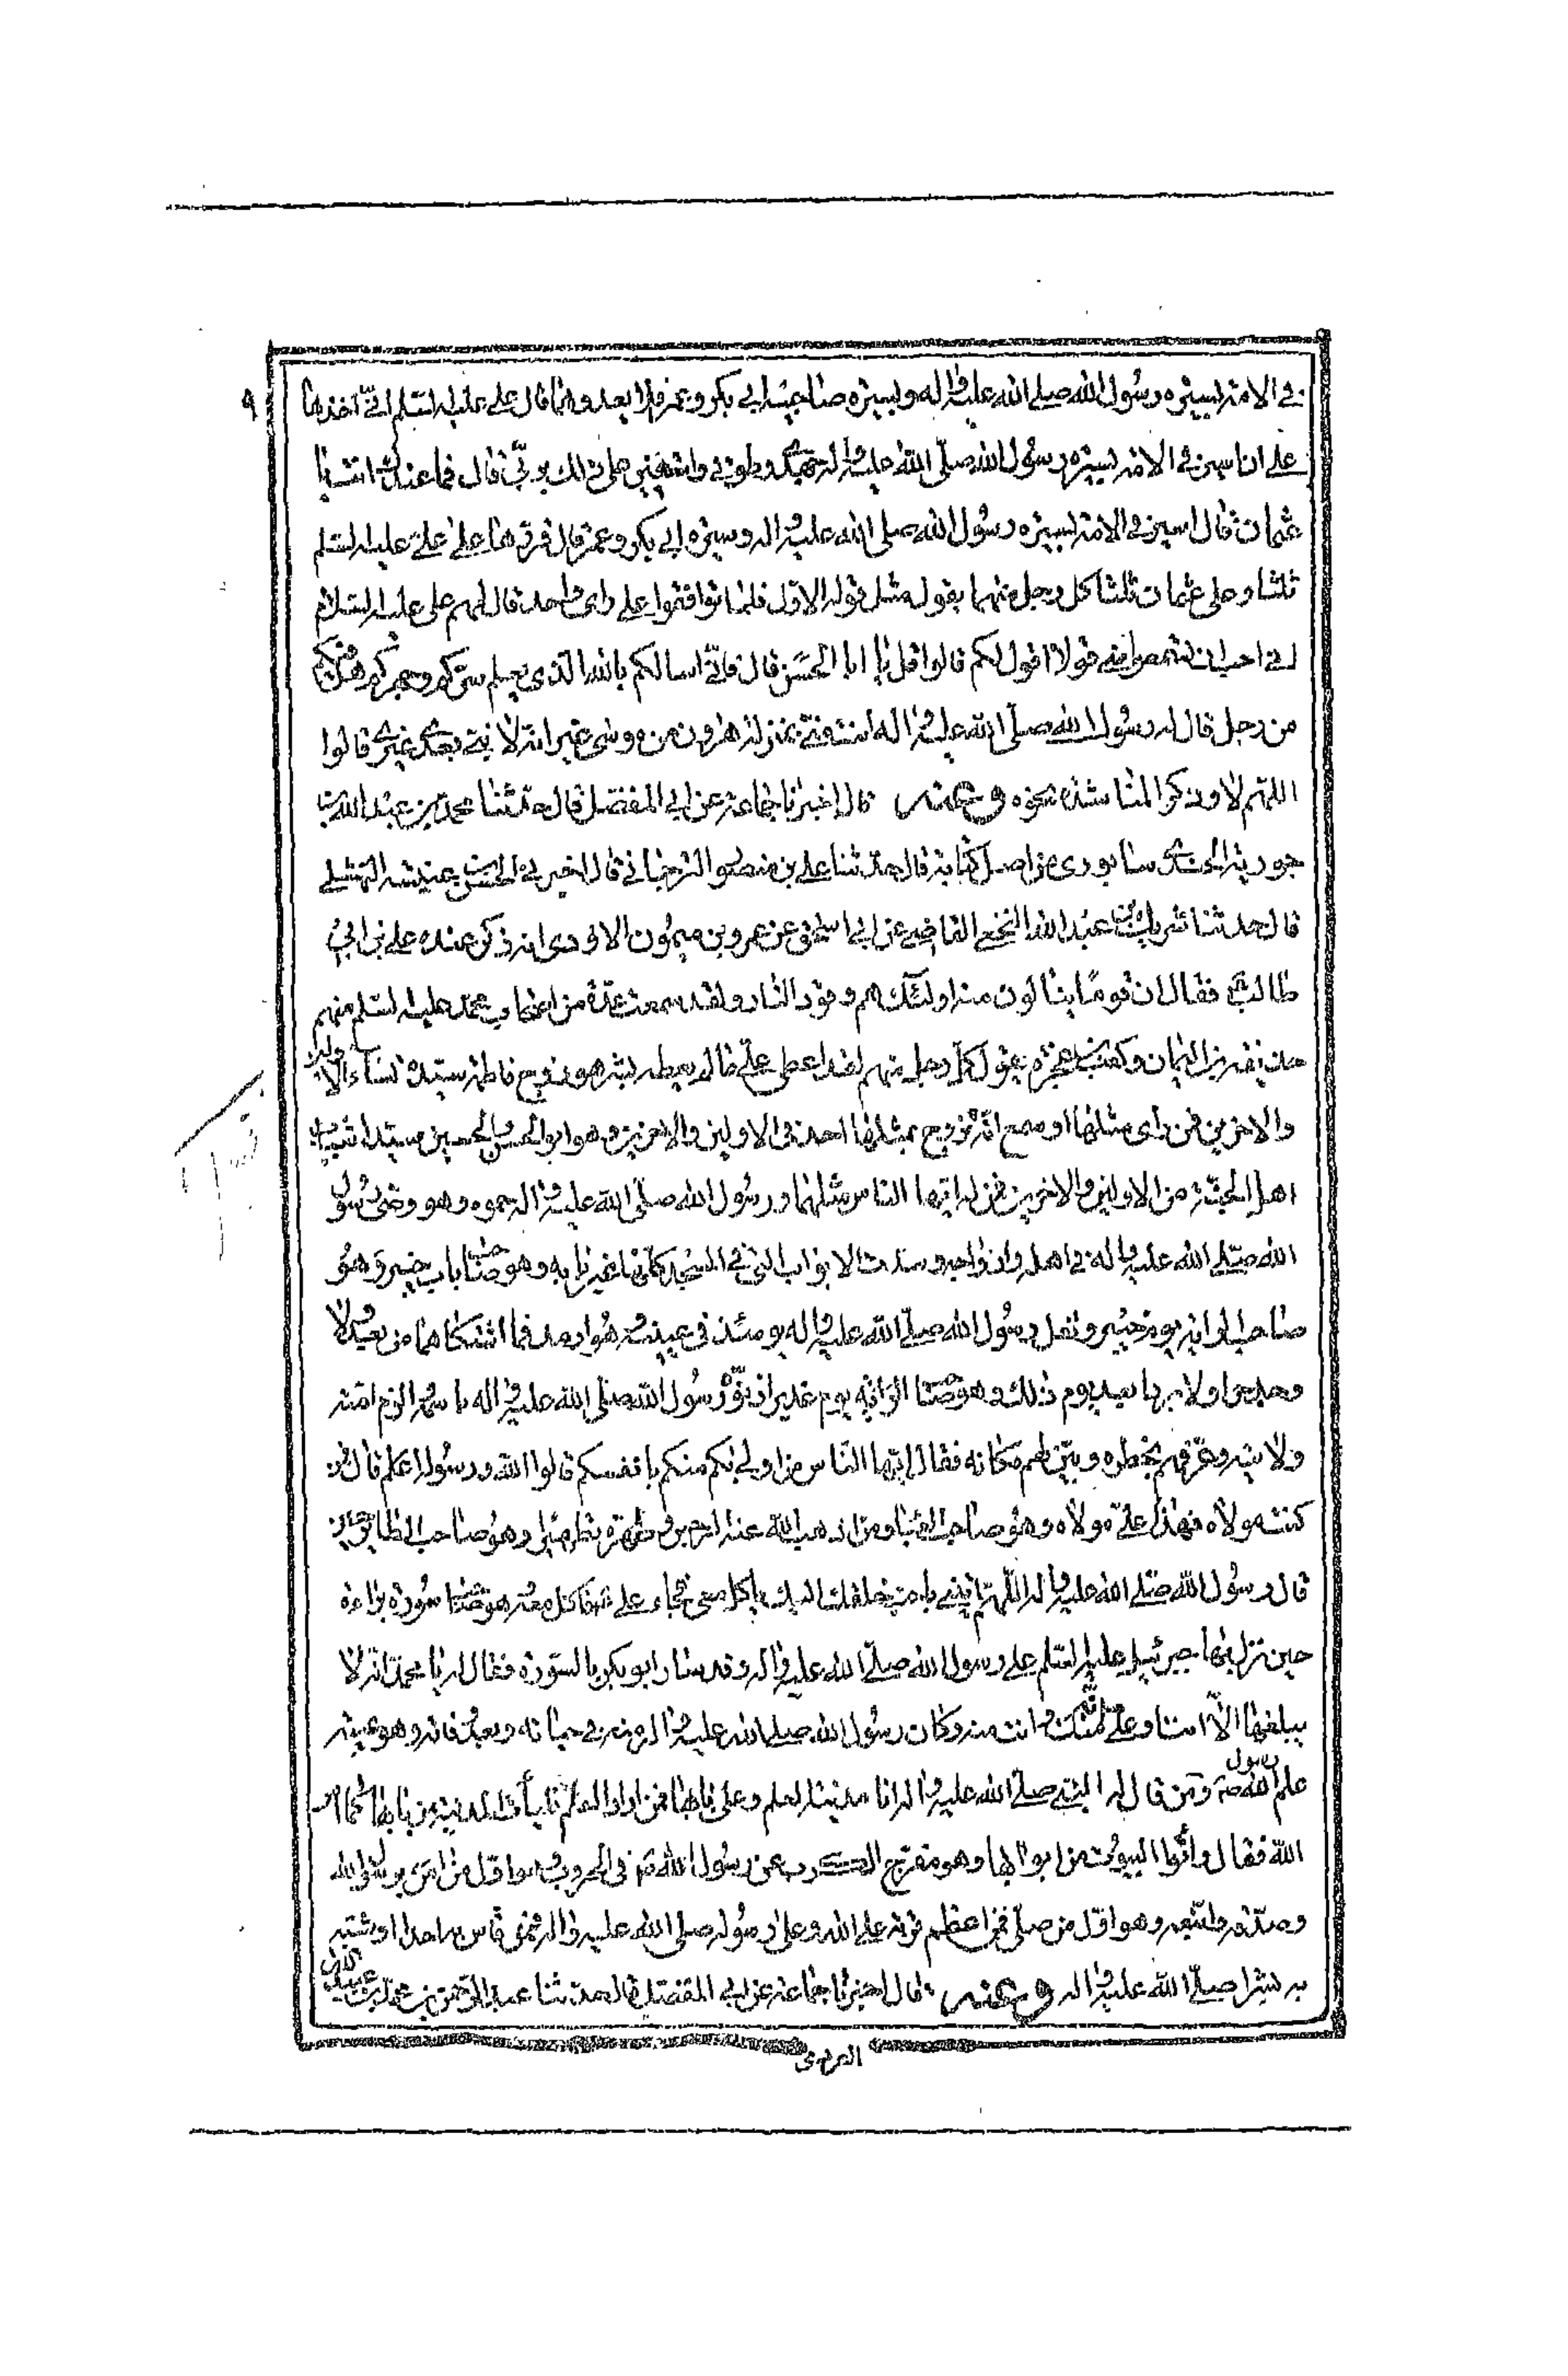 في الامة بسيرة رسول الله صلى الله عليه واله وبسيرة صاحبيه ابي بكر وعمر فلا بعدوهما قال علي عليه السلم اني آخذها
على ان اسير في الامة بسيرة رسول الله صلى الله عليه واله جهدي وطوقي واستعين على ذلك بربي قال فما عندك انت يا
عثمان قال اسير في الامة بسيرة رسول الله صلى الله عليه واله وسيرة ابي بكر وعمر قال فرددها على علي عليه السلم
ثلثا وعلى عثمان ثلثا كل رجل منهما يقول مثل قوله الاول فلما توافقوا على راى واحد قال لهم علي عليه السلام
اني احب ان تسمعوا مني قولا اقول لكم قالوا قل يا ابا الحسن قال فاني اسالكم بالله الذي يعلم سركم وجهركم هل فيكم
من رجل قال له رسول الله صلى الله عليه واله انت مني بمنزلة هرون من موسى غير انه لا نبي بعدي غيري قالوا
اللهم لا وذكر المناشدة نحوه وعنه قال اخبرنا جماعة عن ابي المفضل قال حدثنا محمد بن عبد الله بن
جورية الجندي سابوري من اصل كتابه قال حدثنا علي بن منصور الترجماني قال اخبرني الحسن بن عنبسة النهشلي
قال حدثنا شريك بن عبد الله النخعي القاضي عن ابي اسحق عن عمرو بن ميمون الاودي انه ذكر عنده علي بن ابي
طالب فقال ان قوما ينالون منه اولئك هم وقود النار ولقد سمعت عدة من اصحاب محمد عليه السلم منهم
حذيفة بن اليمان وكعب بن عجرة يقول كل رجل منهم لقد اعطي علي ما لم يعطه بشر هو زوج فاطمة سيدة نساء الاولين
والاخرين فمن راى مثلها او سمع انه تزوج بمثلها احد في الاولين والاخرين وهو ابو الحسن والحسين سيدا شباب
اهل الجنة من الاولين والاخرين فمن له ايها الناس مثلهما ورسول الله صلى الله عليه واله حموه وهو وصي رسول
الله صلى الله عليه واله في اهله وازواجه وسدت الابواب التي في المسجد كلها غير بابه وهو صاحب باب خيبر وهو
صاحب الراية يوم خيبر وتفل رسول الله صلى الله عليه واله يومئذ في عينيه وهو ارمد فما اشتكاهما من بعد ولا
وجد حرا ولا بردا بعد يوم ذلك وهو صاحب الراية يوم غدير اذ نوه رسول الله صلى الله عليه واله باسمه والزم امته
ولايته وعرفهم بخطره وبين لهم مكانه فقال ايها الناس من اولى بكم منكم بانفسكم قالوا الله ورسوله اعلم قال فمن
كنت مولاه فهذا علي مولاه وهو صاحب العبا ومن اذهب الله عنه الرجس وطهره تطهيرا وهو صاحب الطاير حين
قال رسول الله صلى الله عليه واله اللهم ائتني باحب خلقك اليك ياكل معي فجاء علي فاكل معه وهو صاحب سورة براءة
حين نزل بها جبرئيل عليه السلم على رسول الله صلى الله عليه واله وقد سار ابو بكر بالسورة فقال له يا محمد انه لا
يبلغها الا انت او علي انه منك وانت منه وكان رسول الله صلى الله عليه واله منه في حياته وبعد وفاته وهو عيبة
علم رسول الله صه ومن قال له النبي صلى الله عليه واله انا مدينة العلم وعلي بابها فمن اراد العلم فليأت المدينة من بابها كما امر
الله فقال وأتوا البيوت من ابوابها وهو مفرج الكرب عن رسول الله في الحروب وهو اول من امن برسول الله
وصدقه واتبعه وهو اول من صلى فمن اعظم فرية على الله وعلى رسوله صلى الله عليه واله ممن قاس به احدا او شبه
به بشرا صلى الله عليه واله وعنه قال اخبرنا جماعة عن ابي المفضل قال حدثنا عبد الرحمن بن محمد بن عبيد الله
العرزمي